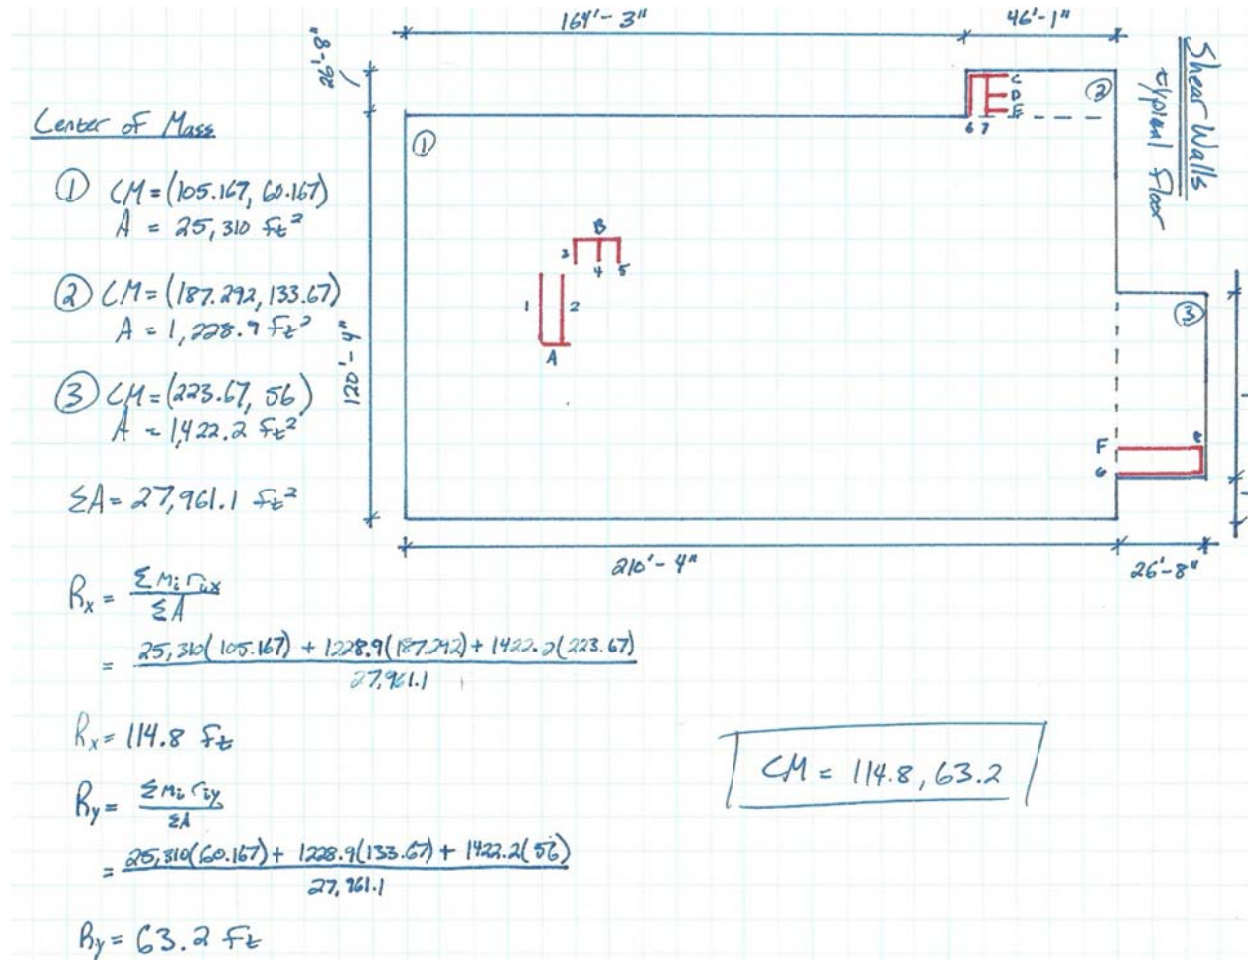 164'-3"
46'-1"
26'-8"
Shear Walls
typical floor
Center of Mass
① CM=(105.167, 60.167)
A = 25,310 ft²
② CM=(187.292, 133.67)
A = 1,228.9 ft²
③ CM=(223.67, 56)
A = 1,422.2 ft²
ΣA = 27,961.1 ft²
120'-4"
①
②
③
C
D
E
6 7
B
3 4 5
1 2
A
F
G
8
210'-4"
26'-8"
Rx = ΣMi rix / ΣA
= 25,310(105.167) + 1228.9(187.292) + 1422.2(223.67) / 27,961.1
Rx = 114.8 ft
Ry = ΣMi riy / ΣA
= 25,310(60.167) + 1228.9(133.67) + 1422.2(56) / 27,961.1
Ry = 63.2 ft
CM = 114.8, 63.2